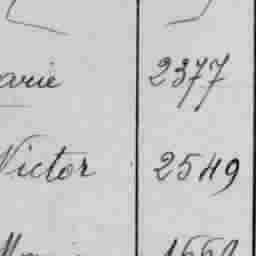 arie 2377
Victor 2549